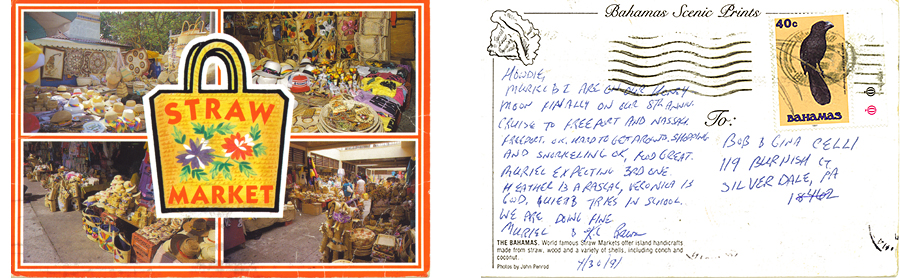 STRAW
MARKET
Bahamas Scenic Prints
40c
BAHAMAS
HOWDIE,
MURIEL & I ARE ON OUR HONEY
MOON FINALLY ON OUR 5th ANNV.
CRUISE TO FREEPORT AND NASSAU.
FREEPORT. OK, HARD TO GET AROUND. SHOPPING
AND SNORKELING OK, FOOD GREAT.
MURIEL EXPECTING 3RD ONE.
HEATHER IS A RASCAL, VERONICA IS
GOD, TRIES IN SCHOOL.
WE ARE DOING FINE
MURIEL &
7/30/91
To:
BOB & GINA CELLI
119 BURNISH CT
SILVERDALE, PA
18962
THE BAHAMAS. World famous Straw Markets offer island handicrafts
made from straw, wood and a variety of shells, including conch and
coconut.
Photos by John Penrod